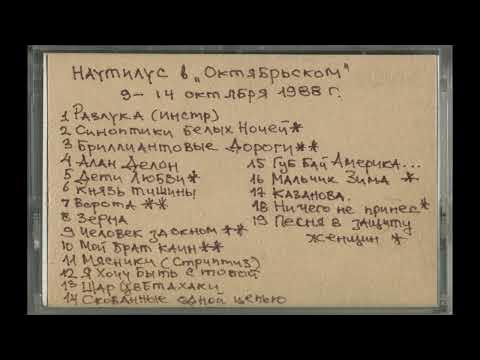 Наутилус в „Октябрьском"
9-14 октября 1988 г.
1 Разлука (инстр)
2 Синоптики белых ночей *
3 Бриллиантовые дороги **
4 Алан Делон
5 Дети любви *
6 Князь тишины
7 Ворота **
8 Зёрна
9 Человек за окном **
10 Мой брат Каин **
11 Мясники (Стриптиз)
12 Я хочу быть с тобой
13 Шар цвета хаки
14 Скованные одной цепью
15 Гуд бай Америка...
16 Мальчик Зима *
17 Казанова.
18 Ничего не принес *
19 Песня в защиту
женщин *